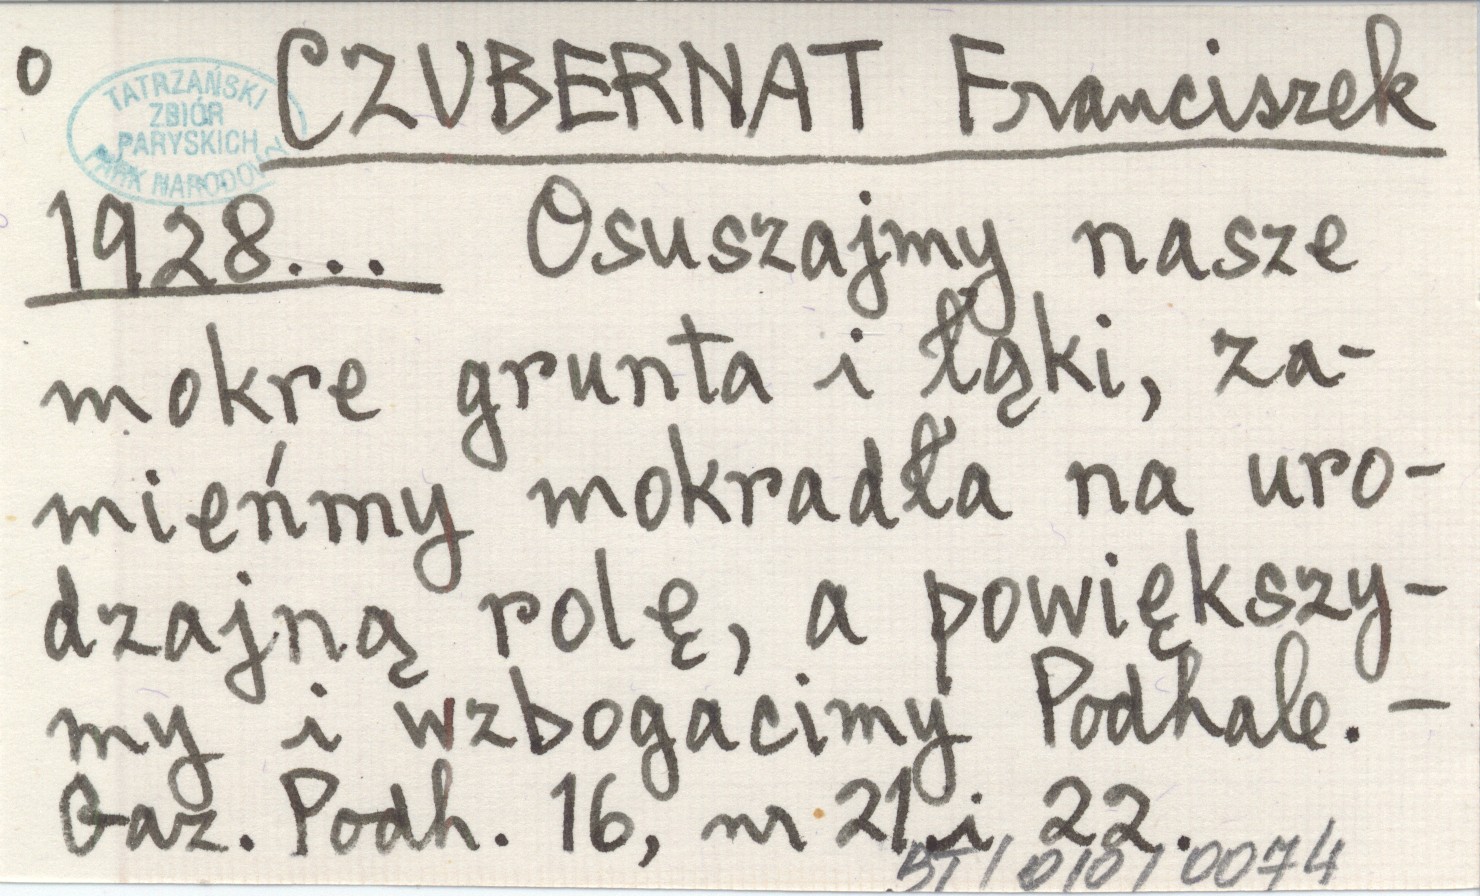 o CZUBERNAT Franciszek
TATRZAŃSKI
ZBIÓR
PARYSKICH
PARK NARODOWY
1928... Osuszajmy nasze
mokre grunta i łąki, za-
mieńmy mokradła na uro-
dzajną rolę, a powiększy-
my i wzbogacimy Podhale. –
Gaz. Podh. 16, nr 21 i 22.
BT/010/0074